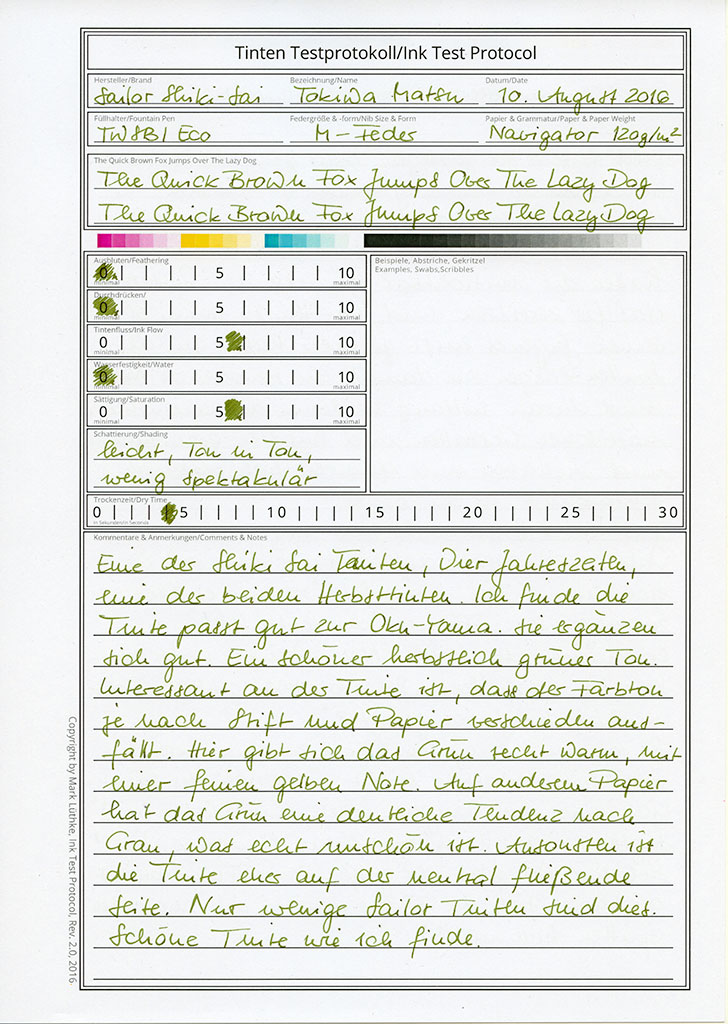 Tinten Testprotokoll/Ink Test Protocol
Hersteller/Brand Bezeichnung/Name Datum/Date
Sailor Shiki-Sai Tokiwa Matsu 10. August 2016
Füllhalter/Fountain Pen Federgröße & -form/Nib Size & Form Papier & Grammatur/Paper & Paper Weight
TWSBI Eco M-Feder Navigator 120g/m²
The Quick Brown Fox Jumps Over The Lazy Dog
The Quick Brown Fox Jumps Over The Lazy Dog
The Quick Brown Fox Jumps Over The Lazy Dog
Ausbluten/Feathering
0 5 10
minimal maximal
Durchdrücken/
0 5 10
minimal maximal
Tintenfluss/Ink Flow
0 5 10
minimal maximal
Wasserfestigkeit/Water
0 5 10
minimal maximal
Sättigung/Saturation
0 5 10
minimal maximal
Schattierung/Shading
leicht, Ton in Ton,
wenig spektakulär
Beispiele, Abstriche, Gekritzel
Examples, Swabs,Scribbles
Trockenzeit/Dry Time
0 5 10 15 20 25 30
in Sekunden/in Seconds
Kommentare & Anmerkungen/Comments & Notes
Eine der Shiki Sai Tinten, Vier Jahreszeiten,
eine der beiden Herbsttinten. Ich finde die
Tinte passt gut zur Oku-Yama. Sie ergänzen
sich gut. Ein schöner herbstlich grüner Ton.
Interessant an der Tinte ist, dass der Farbton
je nach Stift und Papier verschieden aus-
fällt. Hier gibt sich das Grün recht warm, mit
einer feinen gelben Note. Auf anderem Papier
hat das Grün eine deutliche Tendenz nach
Grau, was echt unschön ist. Ansonsten ist
die Tinte eher auf der neutral fließende
Seite. Nur wenige Sailor Tinten sind dies.
Schöne Tinte wie ich finde.
Copyright by Mark Lüthke, Ink Test Protocol, Rev. 2.0, 2016.